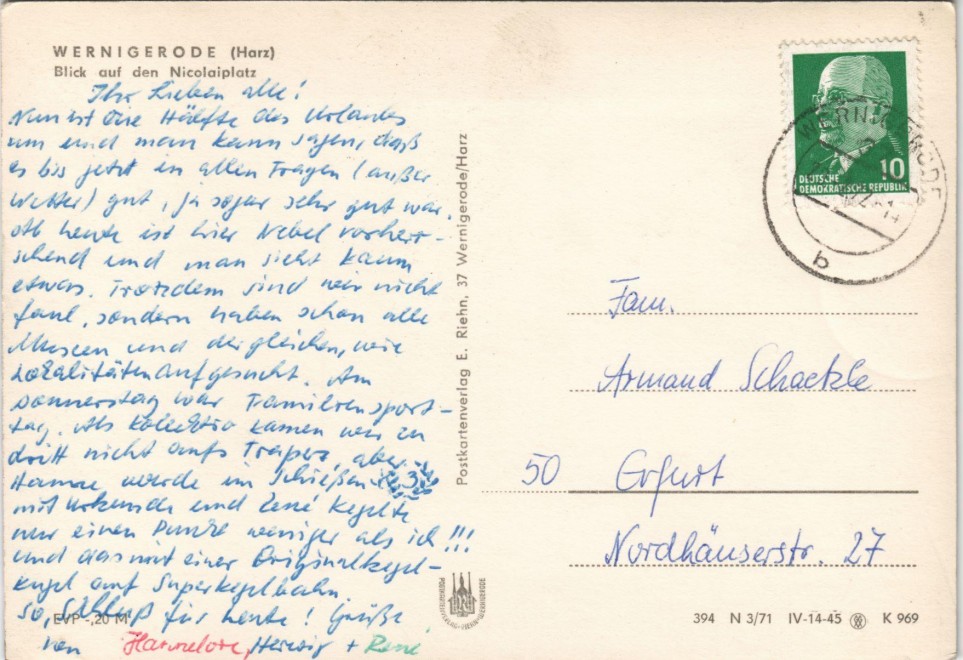 WERNIGERODE (Harz)
Blick auf den Nicolaiplatz
Ihr Lieben alle!
Nun ist die Hälfte des Urlaubs
um und man kann sagen, daß
es bis jetzt in allen Fragen (außer
Wetter) gut, ja sogar sehr gut war.
Ab heute ist hier Nebel vorherr-
schend und man sieht kaum
etwas. Trotzdem sind wir nicht
faul, sondern haben schon alle
Museen und dergleichen, wie
Lokalitäten aufgesucht. Am
Donnerstag war Familiensport-
tag. Als Kollektiv kamen wir zu
dritt nicht aufs Trapez, aber
Hanne wurde im Schießen 3.
mit Urkunde und René kegelte
nur einen Punkt weniger als ich!!!
und das mit einer Originalkegel-
kugel auf Superkegelbahn.
So, Schluß für heute! Grüße
von Hannelore, Herwig + René
EVP -,20 M
Postkartenverlag E. Riehn, 37 Wernigerode/Harz
DEUTSCHE
DEMOKRATISCHE REPUBLIK
10
WERNIGERODE
b
Fam.
Armand Schaetzle
50 Erfurt
Nordhäuserstr. 27
394 N 3/71 IV-14-45 K 969